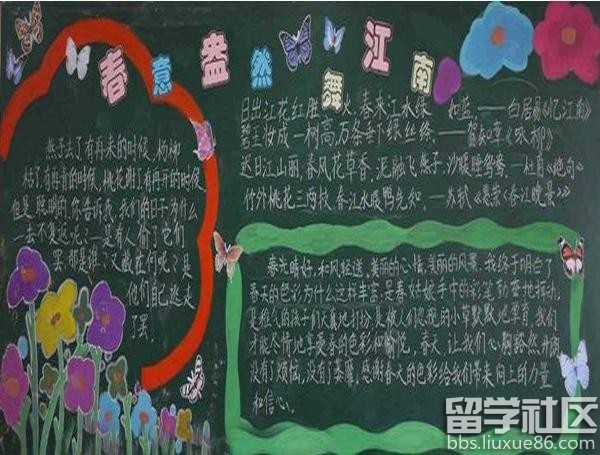 春意盎然舞江南
燕子去了有再来的时候,杨柳
枯了有再青的时候,桃花谢了有再开的时候
但是,聪明的,你告诉我,我们的日子为什么
一去不复返呢?—是有人偷了它们
罢:那是谁?又藏在何呢?是
他们自己逃走
了罢。
日出江花红胜火,春来江水绿如蓝。——白居易《忆江南》
碧玉妆成一树高万条垂下绿丝绦。——贺知章《咏柳》
迟日江山丽,春风花草香,泥融飞燕子,沙暖睡鸳鸯。——杜甫《绝句》
竹外桃花三两枝,春江水暖鸭先知。——苏轼《惠崇《春江晚景》》
春光晴好,和风轻送,美丽的心情,美丽的风景,我终于明白了
春天的色彩为什么这样丰富:是春姑娘手中的彩笔勤奋地挥动,
是稚气的孩子们天真地打扮,是被人们忽视的小草默默地孕育,我们
才能尽情地享受春的色彩和愉悦。春天,让我们心胸豁然开朗
没有了烦恼,没有了萎靡,感谢春天的色彩给我们带来向上的力量
和信心。
留学社区
bbs.liuxue86.com